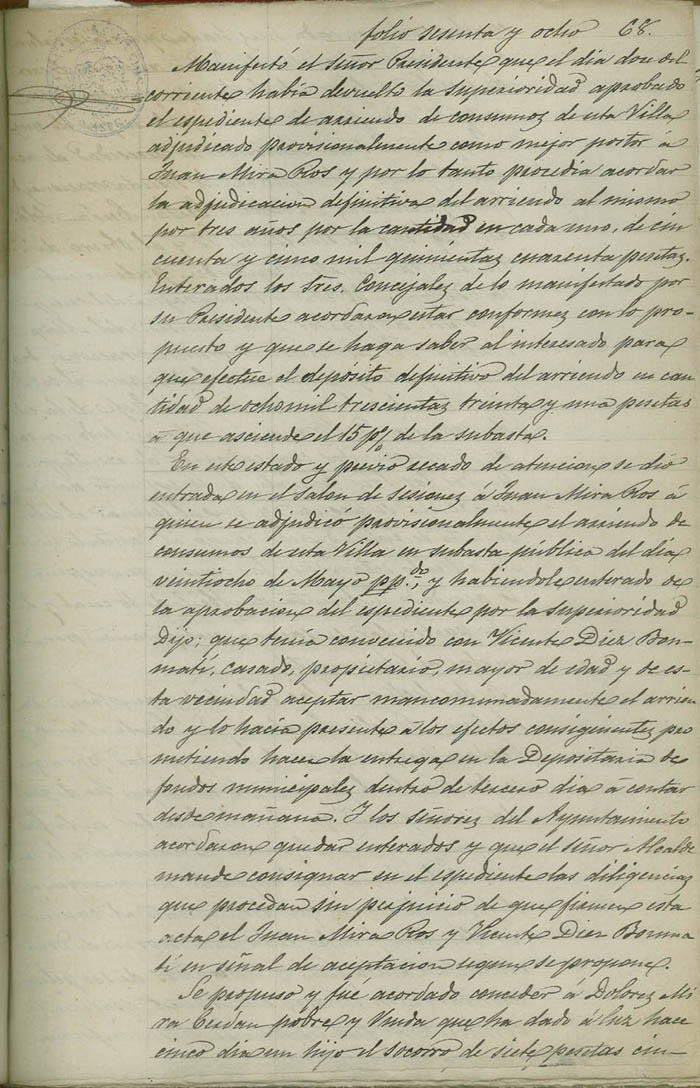 folio sesenta y ocho 68.
Manifestó el señor Presidente que el dia doce del
corriente habia devuelto la Superioridad aprobado
el espediente de arriendo de consumos de esta Villa
adjudicado provisionalmente como mejor postor á
Juan Mira Ros y por lo tanto procedia acordar
la adjudicacion definitiva del arriendo al mismo
por tres años por la cantidad en cada uno, de cin
cuenta y cinco mil quinientas cuarenta pesetas.
Enterados los Sres. Concejales de lo manifestado por
su Presidente acordaron estar conformes con lo pro-
puesto y que se haga saber al interesado para
que efectúe el depósito definitivo del arriendo en can
tidad de ocho mil trescientas treinta y una pesetas
á que asciende el 15 p% de la subasta.
En este estado y prévio recado de atencion se dió
entrada en el salon de sesiones á Juan Mira Ros á
quien se adjudicó provisionalmente el arriendo de
consumos de esta Villa en subasta pública del dia
veintiocho de Mayo pp.do, y habiendole enterado de
la aprobacion del espediente por la Superioridad
Dijo; que tenia convenido con Vicente Diez Bon-
matí, casado, propietario, mayor de edad y de es-
ta vecindad aceptar mancomunadamente el arrien
do y lo hacia presente á los efectos consiguientes pro
mitiendo hacer la entrega en la Depositaria de
fondos municipales dentro de tercero dia á contar
desde mañana. Y los señores del Ayuntamiento
acordaron quedar enterados y que el señor Alcalde
mande consignar en el espediente las diligencias
que procedan sin perjuicio de que firmen esta
acta el Juan Mira Ros y Vicente Diez Bonma
tí en señal de aceptacion segun se propone.
Se propuso y fué acordado conceder á Dolores Mi
ra Cerdan pobre y Viuda que ha dado á luz hace
cinco dia un hijo el socorro de siete pesetas cin-